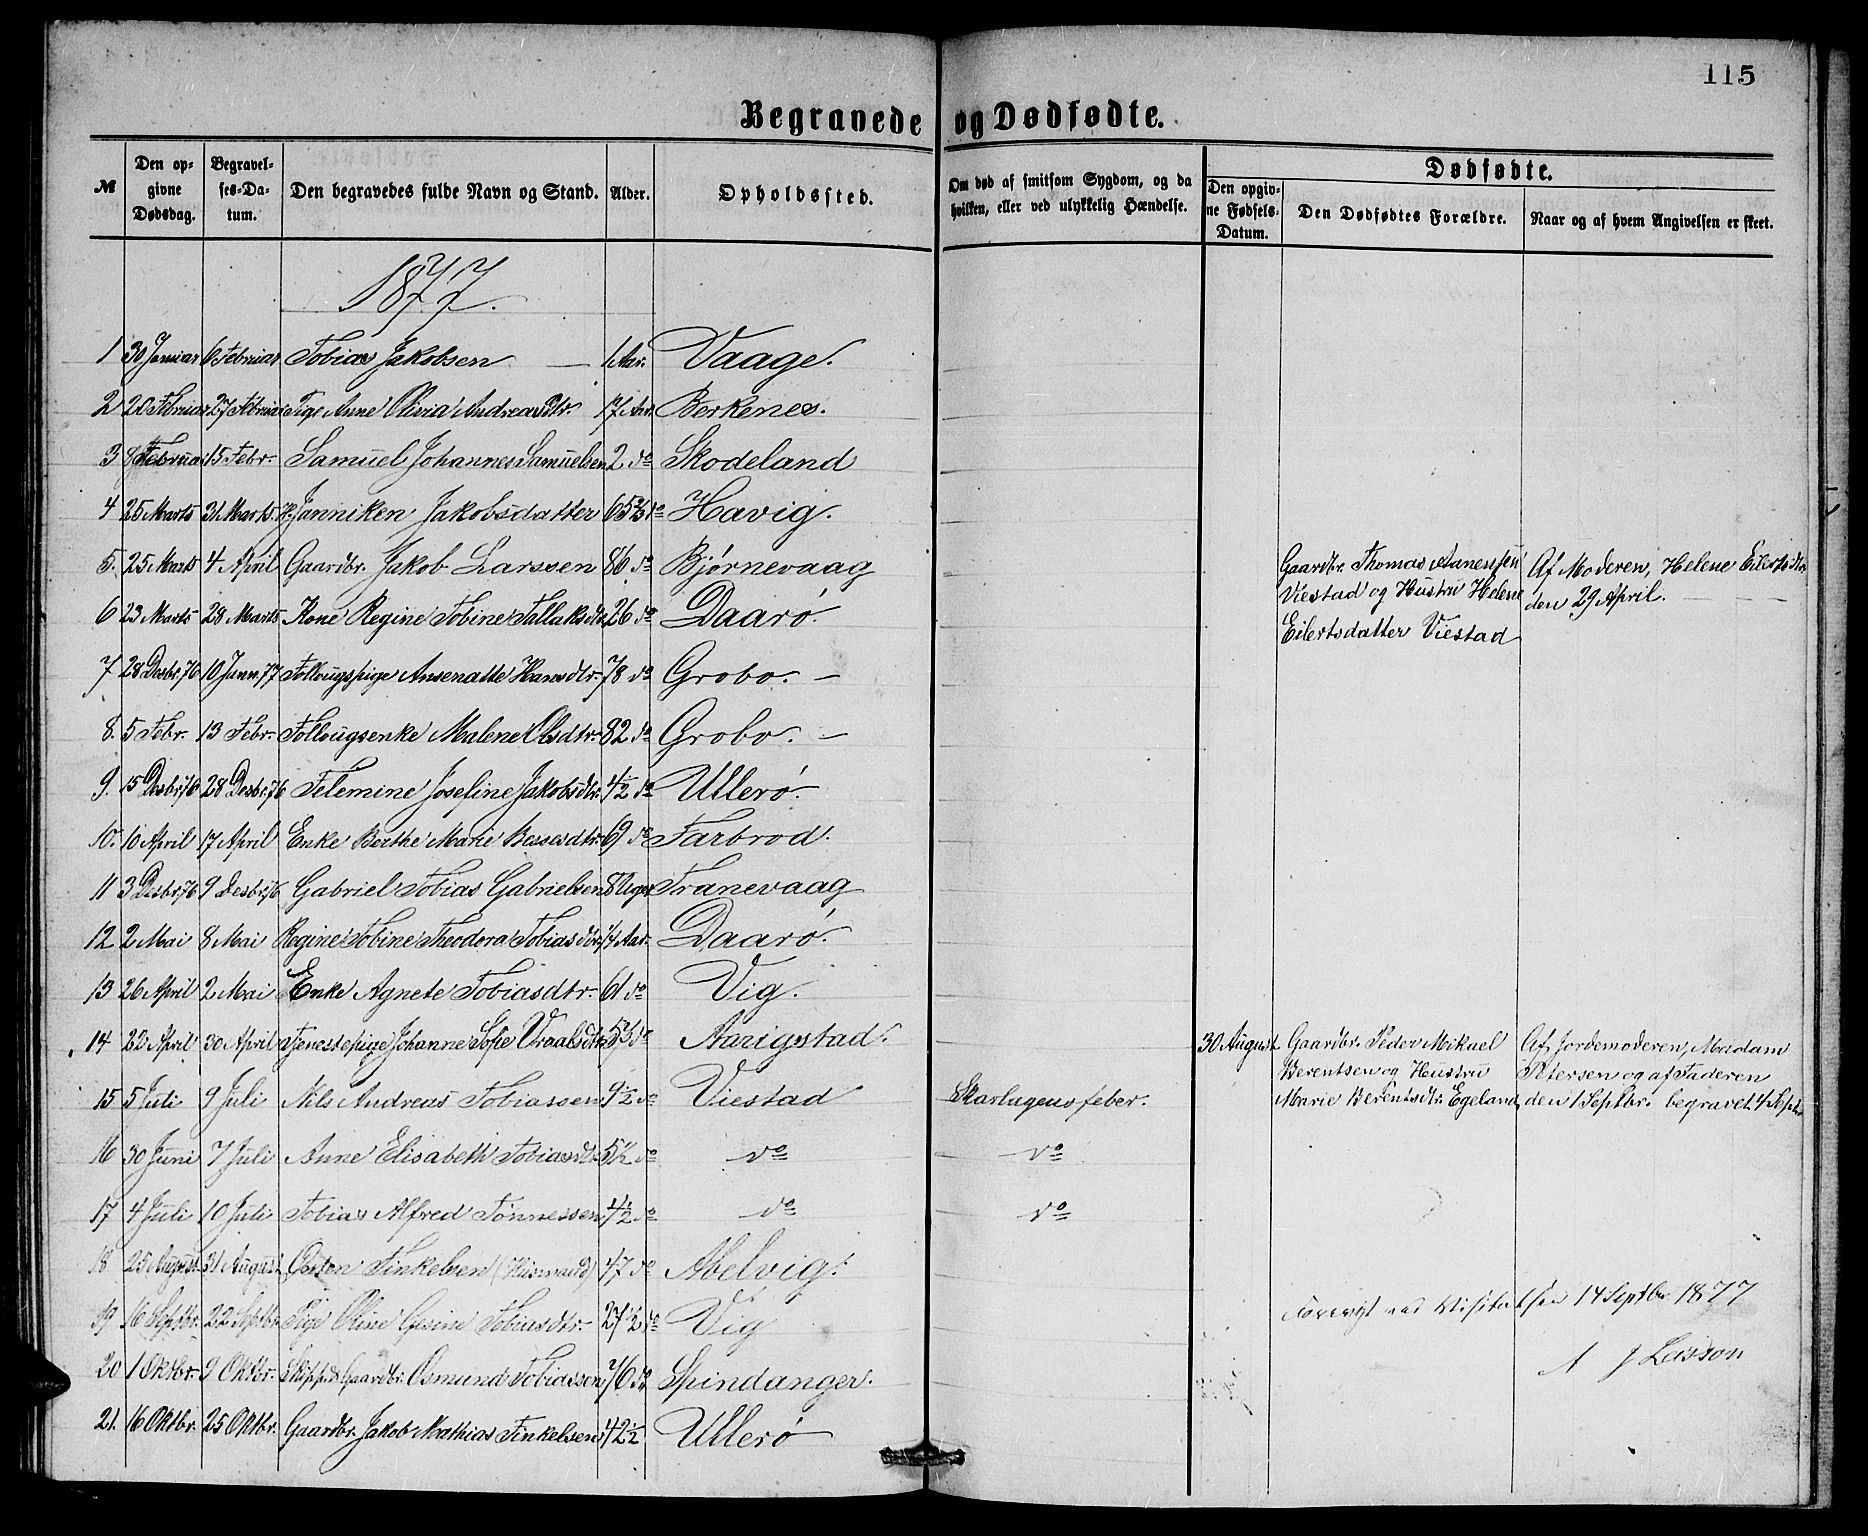 115
Begravede og Dødfødte.
№ Den opgivne Dødsdag. Begravelses-Datum. Den begravedes fulde Navn og Stand. Alder. Opholdssted. Om død af smitsom Sygdom, og da hvilken, eller ved ulykkelig Hændelse. Dødfødte. Den opgivne Fødsels-Datum. Den Dødfødtes Forældre. Naar og af hvem Angivelsen er skeet.
1877.
1 30 Januar 6 Februar Tobias Jakobsen 1 Aar. Vaage.
2 20 Februar 27 Februar Pige Anne Olivia Andreasdtr. 17 Aar. Berkenes.
3 8 Februar 15 Febr. Samuel Johannes Samuelsen 2 do Skodeland
4 25 Marts 31 Marts Janniken Jakobsdatter 65 do Havig.
5. 25 Marts 4 April Gaardbr. Jakob Larssen 86 do Bjørnevaag
Gaardbr. Thomas Aanenssen Af Moderen, Helene Eilertsdtr.
Viestad og Hustru Helene den 29 April.
Eilertsdatter Viestad
6 23 Marts 28 Marts Kone Regine Tobine Tallaksdtr. 26 do Daarø.
7 28 Desbr. 76 10 Jann. 77 Follougspige Ansenatte Hansdtr. 78 do Grobo.
8. 5 Febr. 13 Febr. Follougsenke Malene Olsdtr. 82 do Grobo.
9. 15 Desbr. 76 28 Desbr. 76 Telemine Josefine Jakobsdtr. 4½ do Ullerø.
10. 10 April 17 April Enke Berthe Marie Bessesdtr. 69 do Farbrod.
11 3 Desbr. 76 9 Desbr. 76 Gabriel Tobias Gabrielsen 8 Uger Tranevaag
12 2 Mai 8 Mai Regine Tobine Theodora Tobiasdtr. Aar. Daarø.
13 26 April 2 Mai Enke Agnete Tobiasdtr. 61 do Vig.
14 22 April 30 April Tjenestepige Johanne Sofie do Aarigstad.
30 August Gaardbr. Peder Mikael Af Jordemoderen, Madam
Berentsen og Hustru Petersen og af Faderen
Marie Berentsdtr. Egeland, den 1 Septbr. begravet 4 Septbr
15 5 Juli 9 Juli Nils Andreas Tobiassen 9½ do Viestad Skarlagensfeber.
16 30 Juni 7 Juli Anne Elisabeth Tobiasdtr. 5½ do do do
17 4 Juli 10 Juli Tobias Alfred Tønnessen 4½ do do do
18 25 August 31 August Finkelsen (Husmand) 47 do Abelvig.
19 16 Septbr. 22 Septbr. Pige Oline Gesine Tobiasdtr. 27½ do Vig
Forevist ved Visitatsen 14 Septbr 1877
20 1 Oktbr. 9 Oktbr. Skipp. & Gaardbr. Osmund Tobiassen 76 do Spindanger.
J Lasson
21. 16 Oktbr. 25 Oktbr. Gaardbr. Jakob Mathias Finkelsen 42½ Ullerø